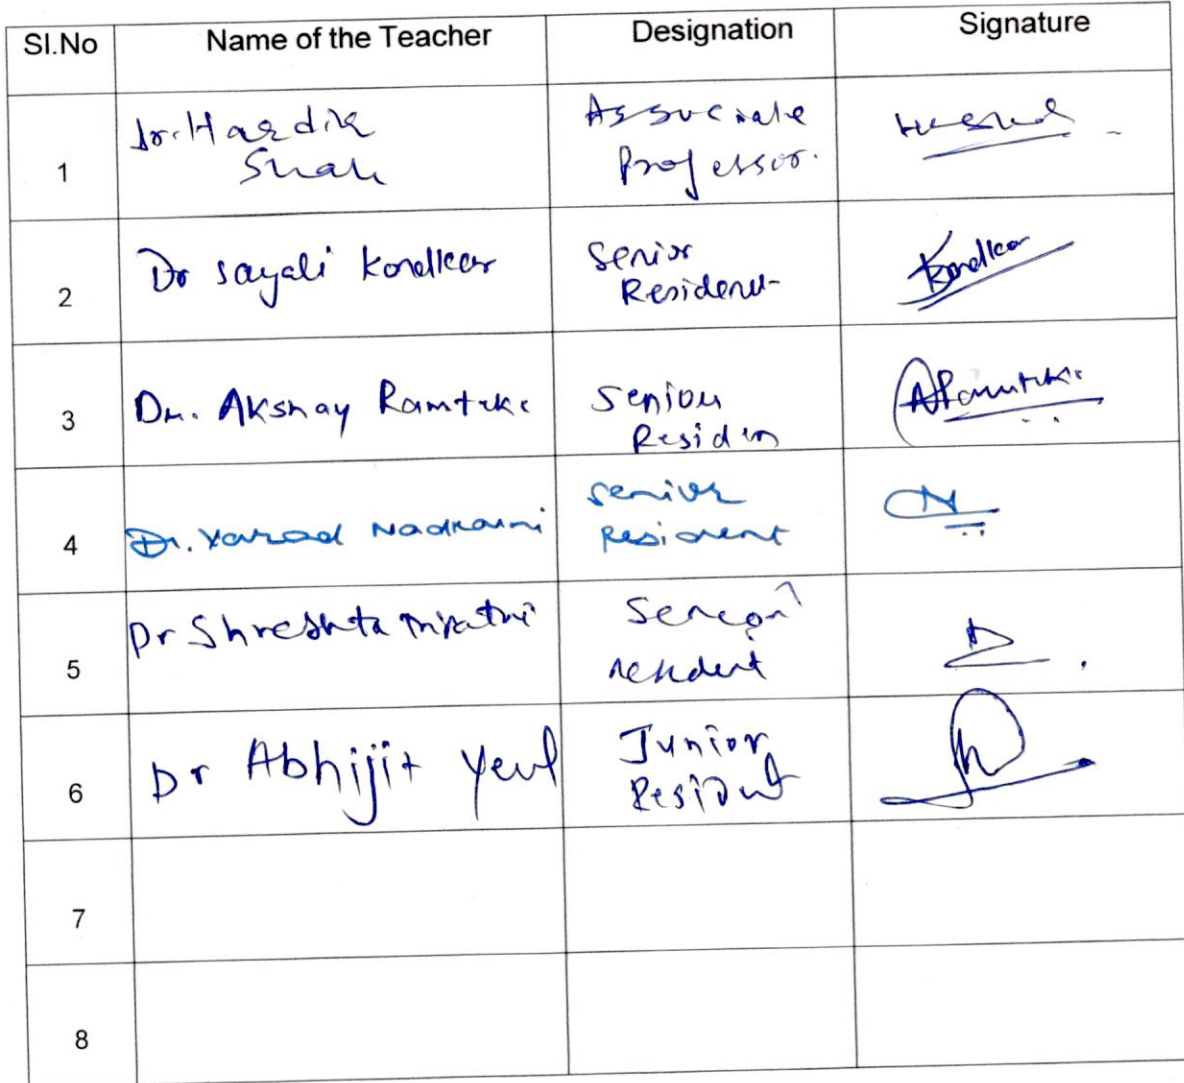 Sl.No Name of the Teacher Designation Signature
1 Dr. Hardik Shah Associate Professor.
2 Dr Sayali Kondlkar Senior Resident Kondlkar
3 Dr. Akshay Ramteke Senior Residen ARamteke
4 Dr. Varad Nadkarni Senior Resident
5 Dr Shreshta Tripathi Senior Resident
6 Dr Abhijit Junior Resident
7
8